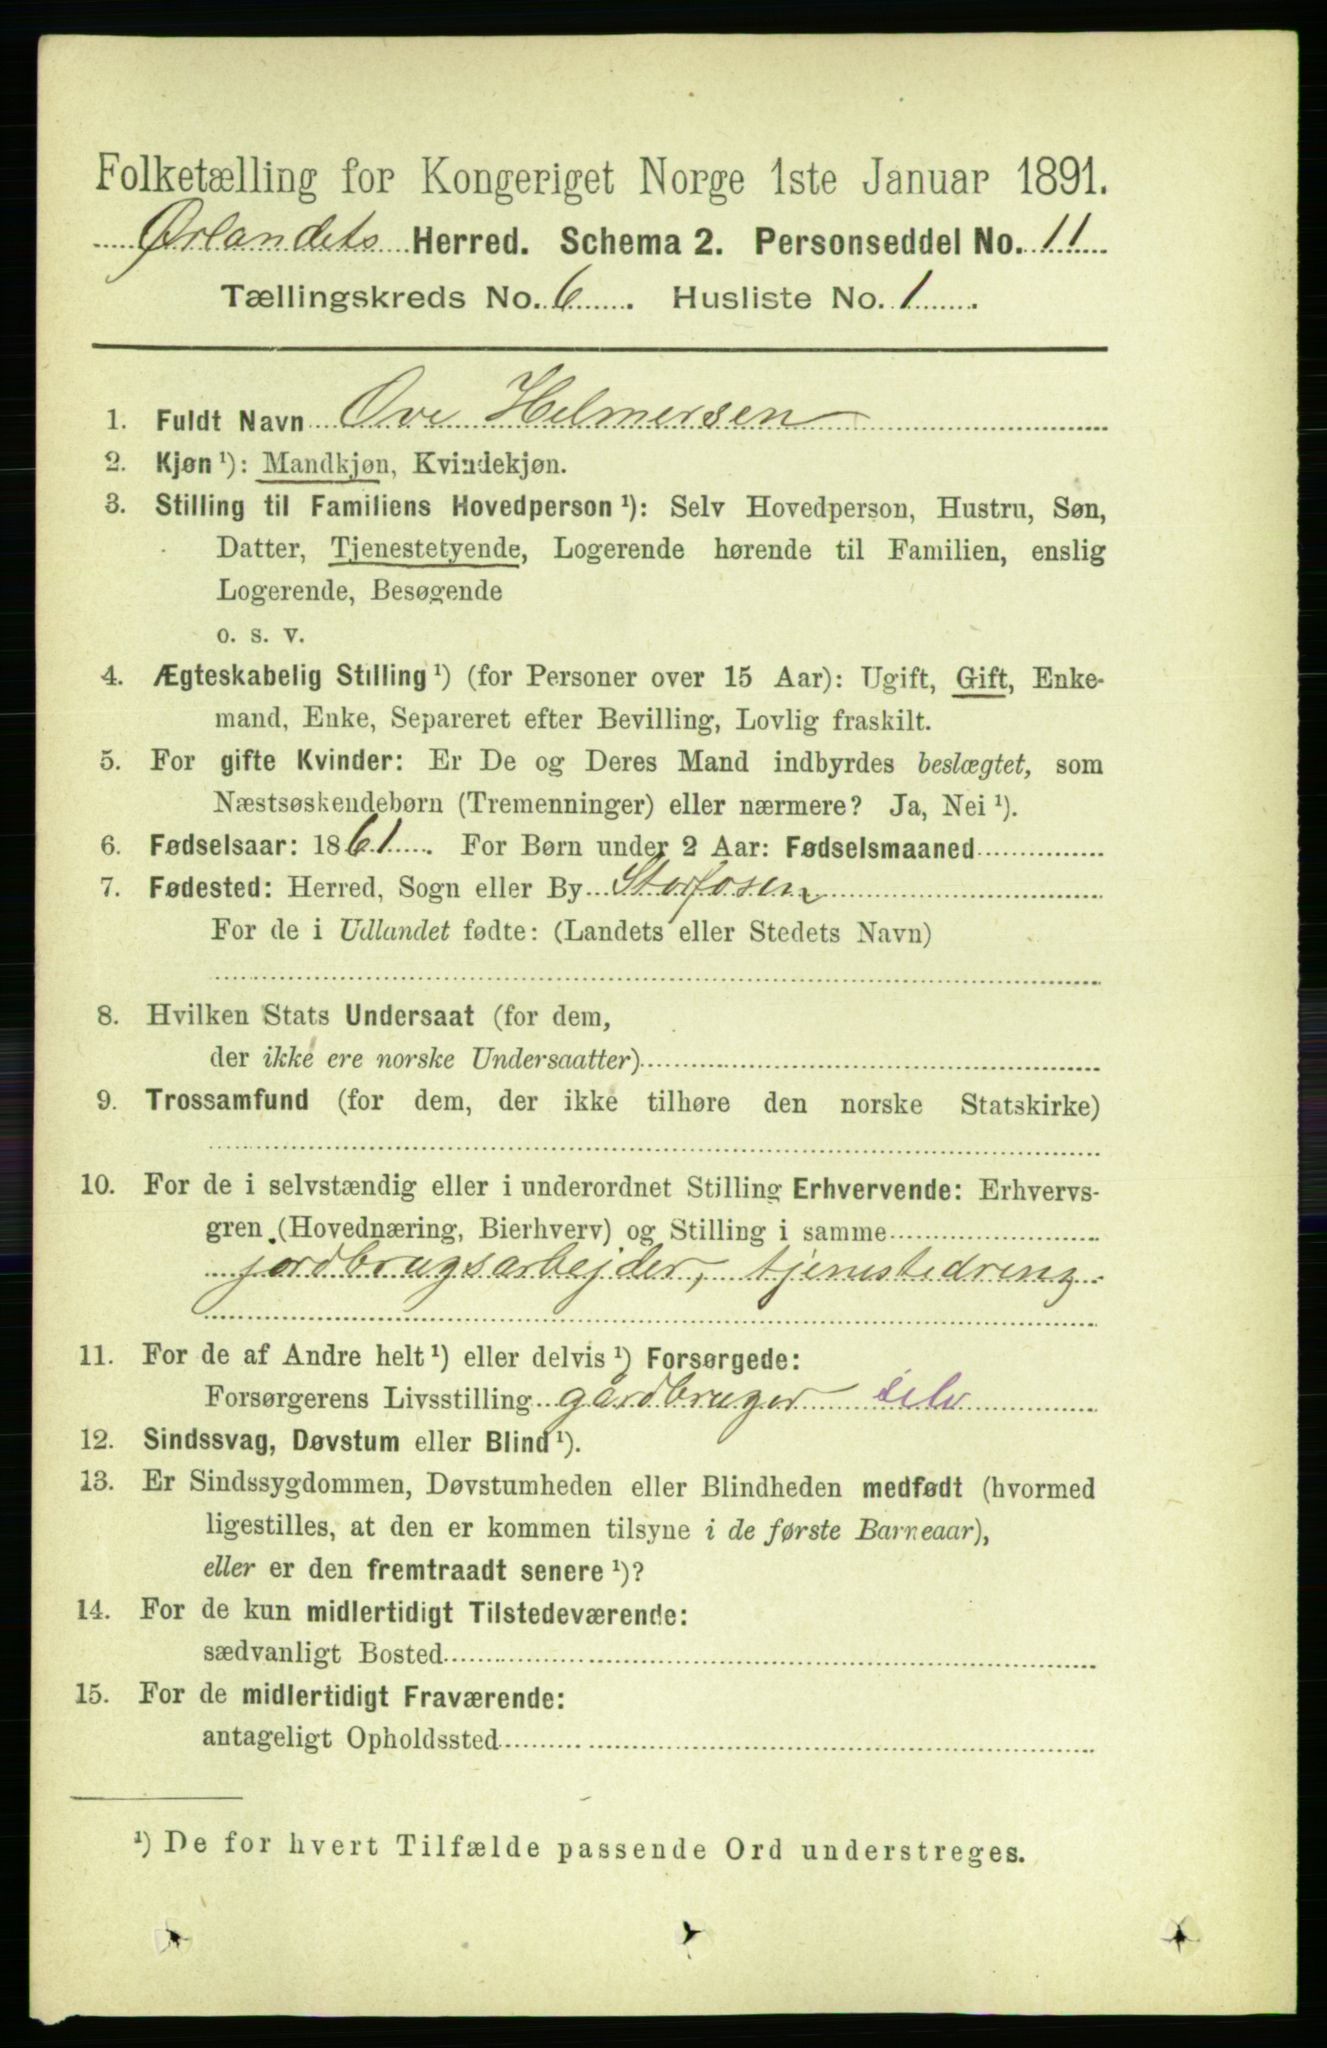 Folketælling for Kongeriget Norge 1ste Januar 1891.
Ørlandets Herred. Schema 2. Personseddel No. 11
Tællingskreds No. 6. Husliste No. 1.
1. Fuldt Navn Ove Helmersen
2. Kjøn ¹): Mandkjøn, Kvindekjøn.
3. Stilling til Familiens Hovedperson ¹): Selv Hovedperson, Hustru, Søn,
Datter, Tjenestetyende, Logerende hørende til Familien, enslig
Logerende, Besøgende
o. s. v.
4. Ægteskabelig Stilling ¹) (for Personer over 15 Aar): Ugift, Gift, Enke-
mand, Enke, Separeret efter Bevilling, Lovlig fraskilt.
5. For gifte Kvinder: Er De og Deres Mand indbyrdes beslægtet, som
Næstsøskendebørn (Tremenninger) eller nærmere? Ja, Nei ¹).
6. Fødselsaar: 1861. For Børn under 2 Aar: Fødselsmaaned
7. Fødested: Herred, Sogn eller By Storfosen
For de i Udlandet fødte: (Landets eller Stedets Navn)
8. Hvilken Stats Undersaat (for dem,
der ikke ere norske Undersaatter)
9. Trossamfund (for dem, der ikke tilhøre den norske Statskirke)
10. For de i selvstændig eller i underordnet Stilling Erhvervende: Erhvervs-
gren (Hovednæring, Bierhverv) og Stilling i samme
jordbrugsarbejder, tjenestedreng.
11. For de af Andre helt ¹) eller delvis ¹) Forsørgede:
Forsørgerens Livsstilling gårdbruger selv
12. Sindssvag, Døvstum eller Blind ¹).
13. Er Sindssygdommen, Døvstumheden eller Blindheden medfødt (hvormed
ligestilles, at den er kommen tilsyne i de første Barneaar),
eller er den fremtraadt senere ¹)?
14. For de kun midlertidigt Tilstedeværende:
sædvanligt Bosted
15. For de midlertidigt Fraværende:
antageligt Opholdssted
¹) De for hvert Tilfælde passende Ord understreges.